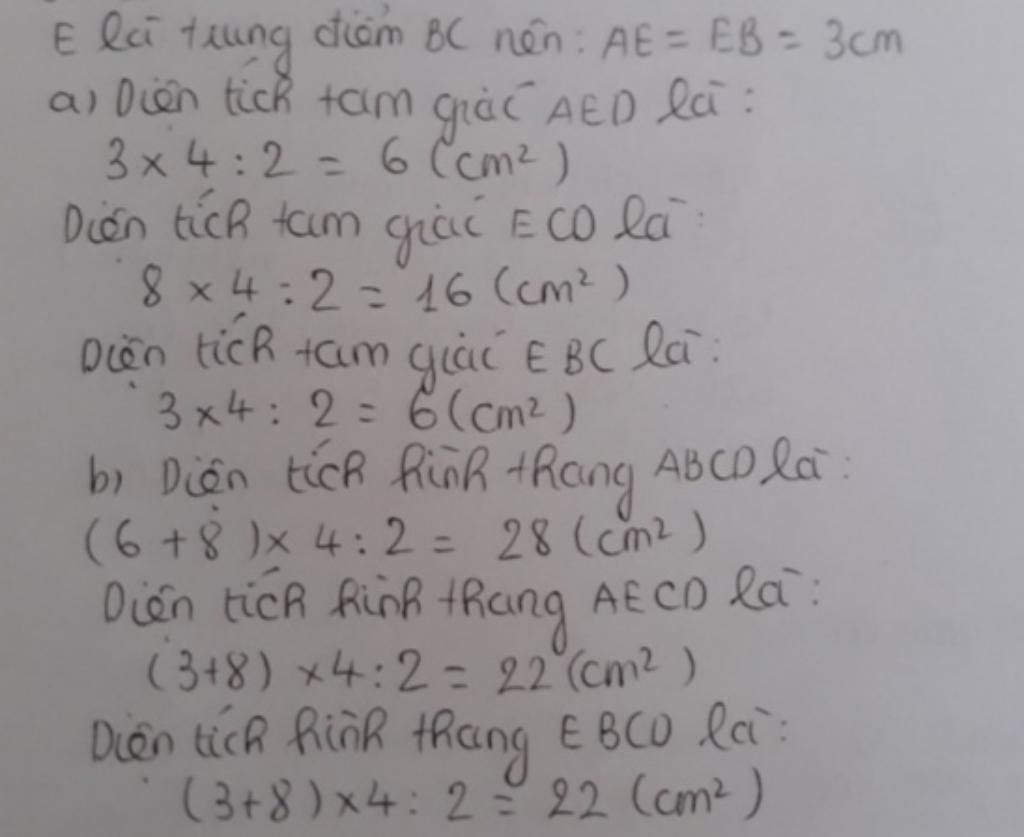 E là trung điểm BC nên: AE = EB = 3cm
a) Diện tích tam giác AED là:
3 x 4 : 2 = 6 (cm²)
Diện tích tam giác ECD là:
8 x 4 : 2 = 16 (cm²)
Diện tích tam giác EBC là:
3 x 4 : 2 = 6 (cm²)
b) Diện tích hình thang ABCD là:
(6 + 8) x 4 : 2 = 28 (cm²)
Diện tích hình thang AECD là:
(3+8) x 4 : 2 = 22 (cm²)
Diện tích hình thang EBCD là:
(3+8) x 4 : 2 = 22 (cm²)